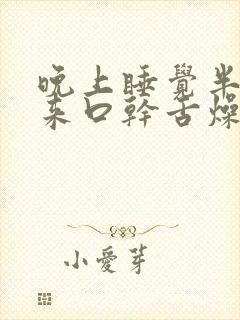 晚上睡覺半
来口幹舌燥
小愛芽